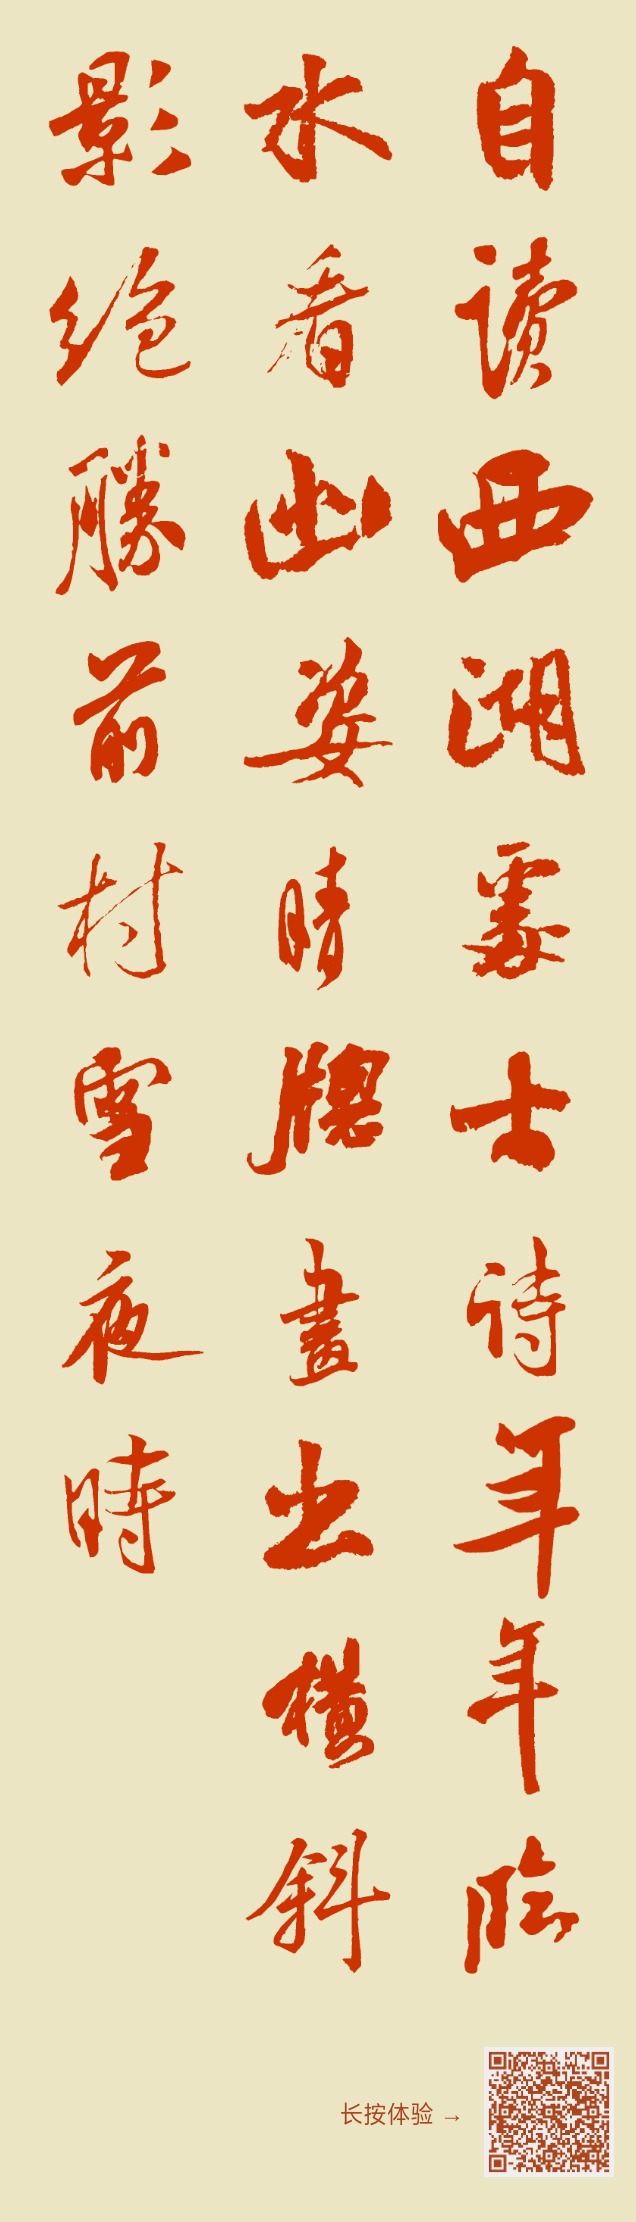 自讀西湖處士詩年年臨
水看幽姿晴牕畫出橫斜
影絕勝前村雪夜時
长按体验 →